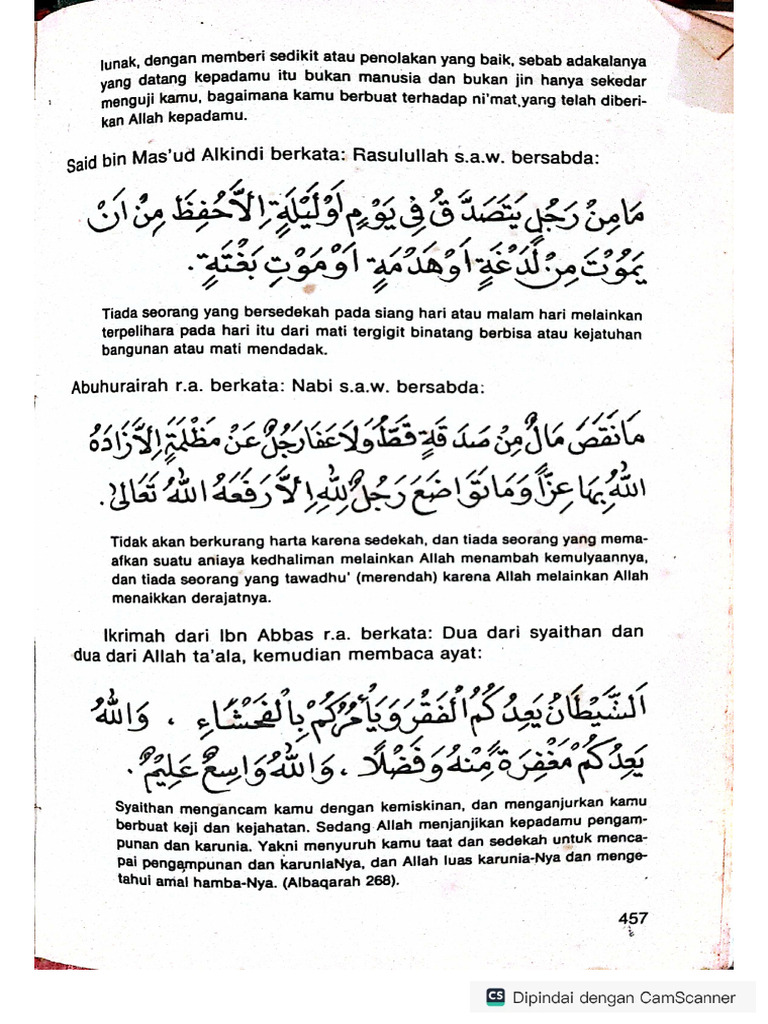 lunak, dengan memberi sedikit atau penolakan yang baik, sebab adakalanya
yang datang kepadamu itu bukan manusia dan bukan jin hanya sekedar
menguji kamu, bagaimana kamu berbuat terhadap ni'mat yang telah diberi-
kan Allah kepadamu.
Said bin Mas'ud Alkindi berkata: Rasulullah s.a.w. bersabda:
مَامِنْ رَجُلٍ يَتَصَدَّقُ فِي يَوْمٍ اَوْلَيْلَةٍ اِلَّاحُفِظَ مِنْ اَنْ
يَمُوْتَ مِنْ لَدْغَةٍ اَوْهَدْمَةٍ اَوْمَوْتِ بَغْتَةٍ.
Tiada seorang yang bersedekah pada siang hari atau malam hari melainkan
terpelihara pada hari itu dari mati tergigit binatang berbisa atau kejatuhan
bangunan atau mati mendadak.
Abuhurairah r.a. berkata: Nabi s.a.w. bersabda:
مَانَقَصَ مَالٌ مِنْ صَدَقَةٍ قَطُّ وَلاَعَفَارَجُلٌ عَنْ مَظْلَمَةٍ اِلَّازَادَهُ
اللهُ بِهَاعِزًّا وَمَاتَوَاضَعَ رَجُلٌ لِلّٰهِ اِلَّا رَفَعَهُ اللهُ تَعَالىٰ.
Tidak akan berkurang harta karena sedekah, dan tiada seorang yang mema-
afkan suatu aniaya kedhaliman melainkan Allah menambah kemulyaannya,
dan tiada seorang yang tawadhu' (merendah) karena Allah melainkan Allah
menaikkan derajatnya.
Ikrimah dari Ibn Abbas r.a. berkata: Dua dari syaithan dan
dua dari Allah ta'ala, kemudian membaca ayat:
اَلشَّيْطَانُ يَعِدُكُمُ الْفَقْرَ وَيَأْمُرُكُمْ بِالْفَحْشَاءِ ، وَاللهُ
يَعِدُكُمْ مَغْفِرَةً مِّنْهُ وَفَضْلًا ، وَاللهُ وَاسِعٌ عَلِيْمٌ.
Syaithan mengancam kamu dengan kemiskinan, dan menganjurkan kamu
berbuat keji dan kejahatan. Sedang Allah menjanjikan kepadamu pengam-
punan dan karunia. Yakni menyuruh kamu taat dan sedekah untuk menca-
pai pengampunan dan karuniaNya, dan Allah luas karunia-Nya dan menge-
tahui amal hamba-Nya. (Albaqarah 268).
457
CS Dipindai dengan CamScanner